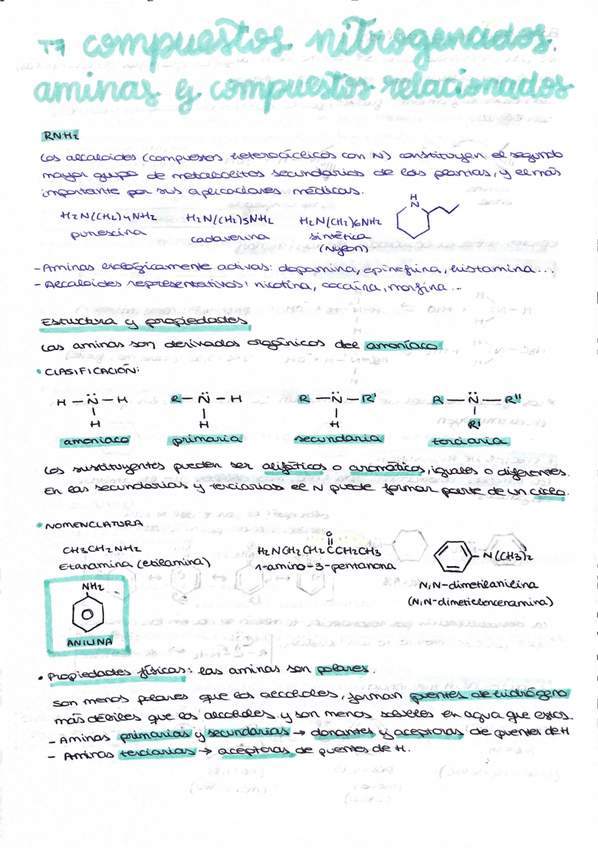 T7 compuestos nitrogenados.
aminas y compuestos relacionados
RNH2
Los alcaloides (compuestos heterocíclicos con N) constituyen el segundo
mayor grupo de metabolitos secundarios de las plantas, y el más
importante por sus aplicaciones médicas.
H2N(CH2)4NH2 H2N(CH2)5NH2 H2N(CH2)6NH2
putrescina cadaverina sintética
(Nylon)
H
N
- Aminas biológicamente activas: dopamina, epinefrina, histamina...
- Alcaloides representativos: nicotina, cocaína, morfina...
Estructura y propiedades
Las aminas son derivados orgánicos del amoníaco.
• CLASIFICACIÓN:
H — N — H R — N — H R — N — R' R — N — R''
H H H R'
amoniaco primaria secundaria terciaria
Los sustituyentes pueden ser alifáticos o aromáticos, iguales o diferentes.
En las secundarias y terciarias el N puede formar parte de un ciclo.
• NOMENCLATURA
CH3CH2NH2 H2NCH2CH2CCH2CH3 N(CH3)2
O
Etanamina (etilamina) 1-amino-3-pentanona
N,N-dimetilanilina
(N,N-dimetilbencenamina)
NH2
ANILINA
• Propiedades físicas: las aminas son polares.
son menos polares que los alcoholes, forman puentes de hidrógeno
más débiles que los alcoholes y son menos solubles en agua que estos.
- Aminas primarias y secundarias → donantes y aceptoras de puentes de H
- Aminas terciarias → aceptoras de puentes de H.